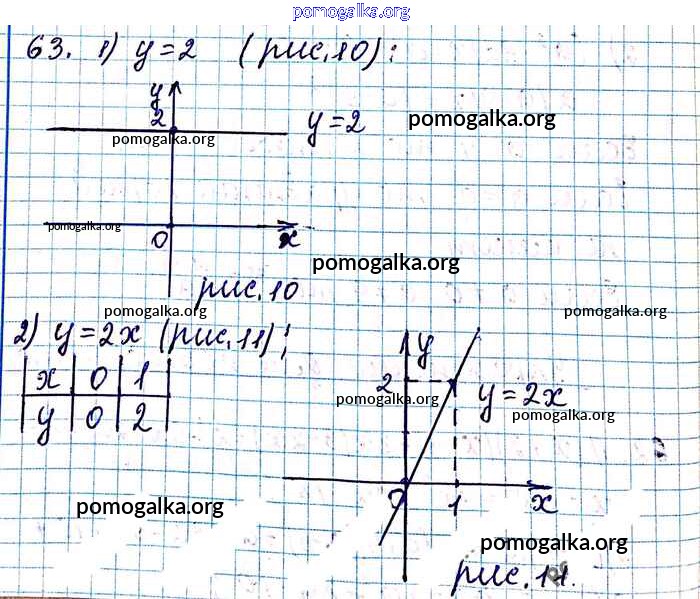 pomogalka.org
63. 1) y=2 (рис.10);
y
2
y=2
pomogalka.org
pomogalka.org
pomogalka.org
0
x
pomogalka.org
рис.10
pomogalka.org
pomogalka.org
2) y=2x (рис.11);
x 0 1
y 0 2
y
2
y=2x
pomogalka.org
pomogalka.org
0
1
x
pomogalka.org
pomogalka.org
рис.11.